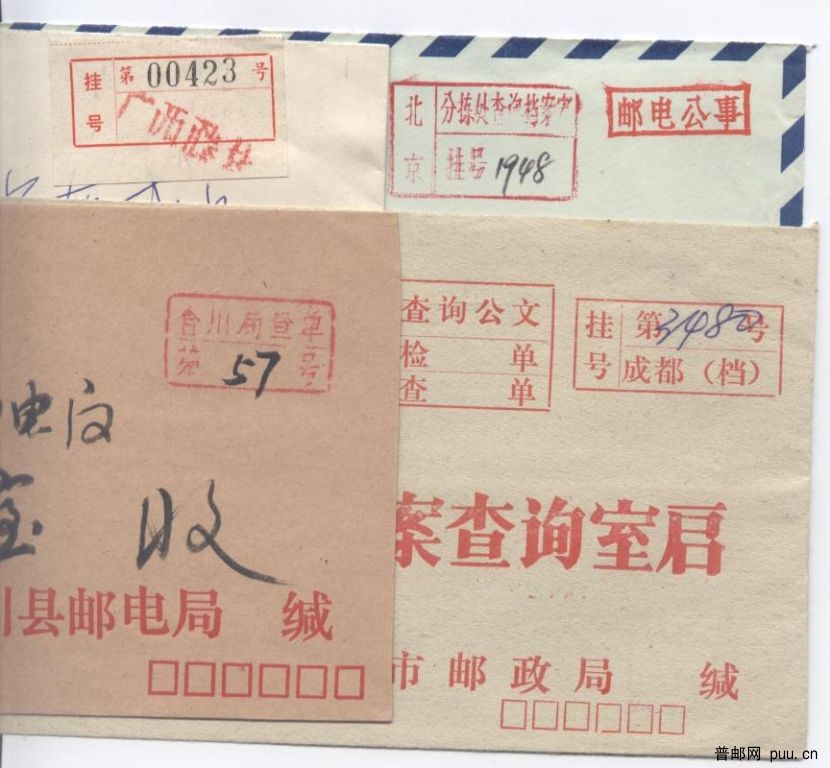 挂号 第 00423 号
广西
北京 分拣处查询档案室
挂号 1948
邮电公事
合川局查单
第 57 号
查询公文
检 单
查 单
挂号 第3480号
成都（档）
收
案查询室启
川县邮电局 缄
市邮政局 缄
普邮网 puu.cn